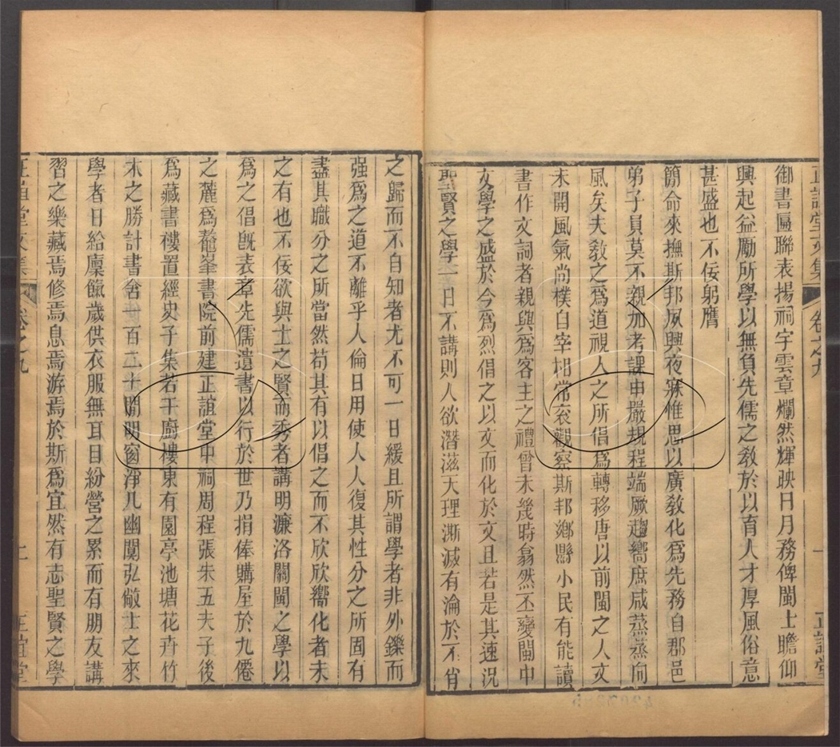 正誼堂文集 卷之九 一 正誼堂
御書匾聯表揚祠宇雲章爛然輝映日月務俾閩士瞻仰
興起益勵所學以無負先儒之教於以育人才厚風俗意
甚盛也不佞躬膺
簡命來撫斯邦夙興夜寐惟思以廣教化爲先務自郡邑
弟子員莫不親加考課申嚴規程端厥趨嚮庶咸蒸蒸向
風矣夫教之爲道視人之所倡爲轉移唐以前閩之人文
未開風氣尚樸自宰相常衮觀察斯邦鄉縣小民有能讀
書作文詞者親與爲客主之禮曾未幾時翕然丕變閩中
文學之盛於今爲烈倡之以文而化於文且若是其速況
聖賢之學一日不講則人欲潛滋天理漸滅有淪於不肖
之歸而不自知者尤不可一日緩且所謂學者非外鑠而
强爲之道不離乎人倫日用使人人復其性分之所固有
盡其職分之所當然苟其有以倡之而不欣欣嚮化者未
之有也不佞欲與士之賢而秀者講明濂洛關閩之學以
爲之倡旣表章先儒遺書以行於世乃捐俸購屋於九僊
之麓爲鼇峯書院前建正誼堂中祠周程張朱五夫子後
爲藏書樓置經史子集若干廚樓東有園亭池塘花卉竹
木之勝計書舍一百二十間明窗淨几幽闃弘敞士之來
學者日給廩餼歲供衣服無耳目紛營之累而有朋友講
習之樂藏焉修焉息焉游焉於斯爲宜然有志聖賢之學
正誼堂文集 卷之九 二 正誼堂